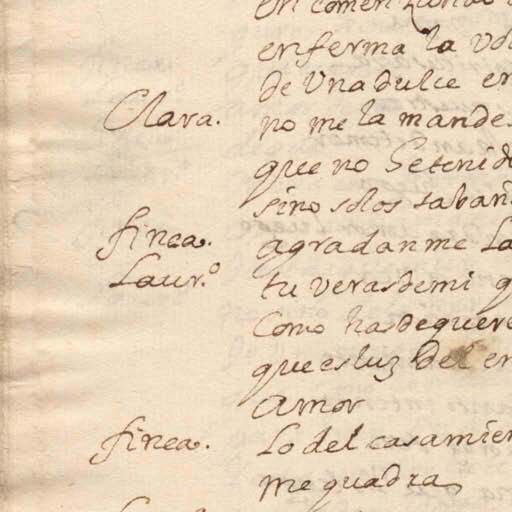 en comenzando
enferma la vo
de Una dulce en
Clara. no me la mande
que no he tenido
sino solos sabañ
finea. agradanme La
Laur.o tu veras de mi q
Como has de quere
que es luz del en
Amor
finea. Lo del casamien
me quadra